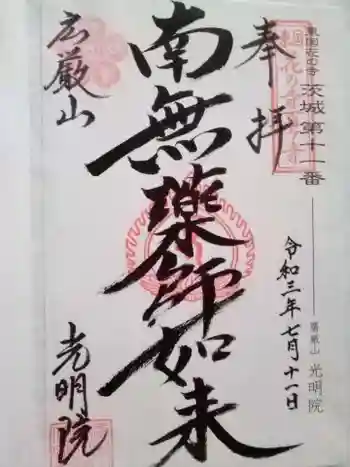 東国花の寺 茨城 第十一番
廣厳山 光明院
奉拝
令和三年七月十一日
南無薬師如来
広厳山
光明院